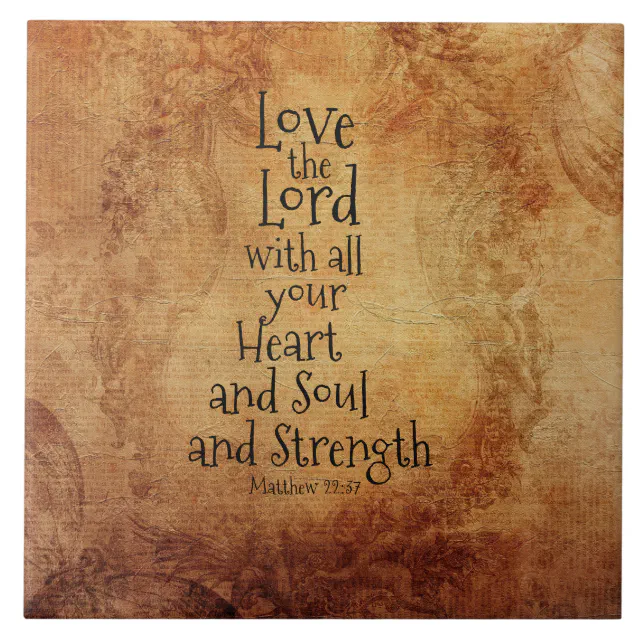 Love
the
Lord
with all
your
Heart
and Soul
and Strength
Matthew 22:37